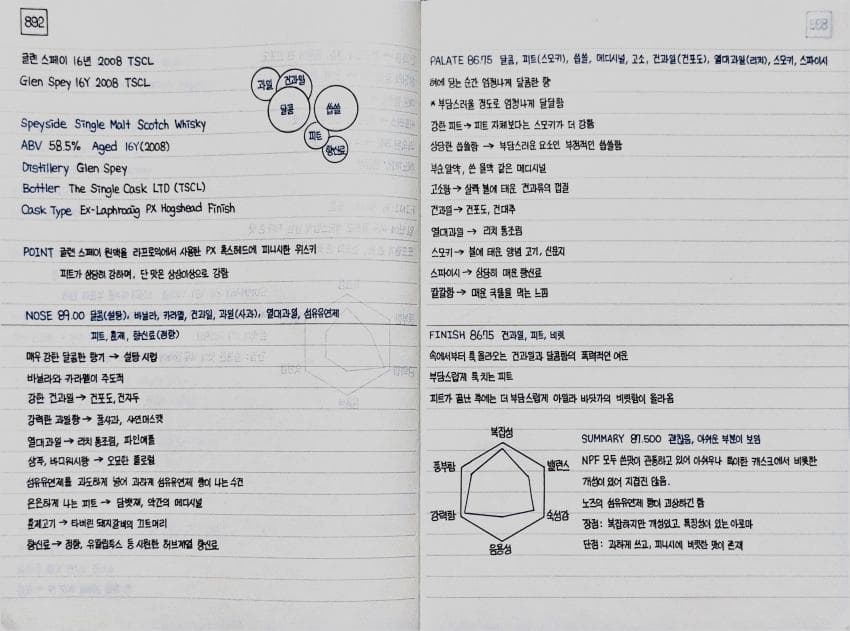 892
글렌 스페이 16년 2008 TSCL
Glen Spey 16Y 2008 TSCL
과일
건과일
달콤
씁쓸
피트
향신료
Speyside Single Malt Scotch Whisky
ABV 58.5% Aged 16Y(2008)
Distillery Glen Spey
Bottler The Single Cask LTD (TSCL)
Cask Type Ex-Laphroaig PX Hogshead Finish
POINT 글렌 스페이 원액을 라프로익에서 사용한 PX 혹스헤드에 피니시한 위스키
피트가 상당히 강하며, 단 맛은 상상이상으로 강함
NOSE 89.00 달콤(설탕), 바닐라, 카라멜, 건과일, 과일(사과), 열대과일, 섬유유연제
피트, 훈제, 향신료(정향)
매우 강한 달콤한 향기 → 설탕 시럽
바닐라와 카라멜이 주도적
강한 건과일 → 건포도, 건자두
강력한 과일향 → 풋사과, 샤인머스캣
열대과일 → 리치 통조림, 파인애플
상쾌, 바디워시향 → 오묘한 플로럴
섬유유연제를 과도하게 넣어 과하게 섬유유연제 향이 나는 수건
은은하게 나는 피트 → 담뱃재, 약간의 메디시널
훈제고기 → 타버린 돼지갈비의 끄트머리
향신료 → 정향, 유칼립투스 등 시원한 허브계열 향신료
PALATE 86.75 달콤, 피트(스모키), 씁쓸, 메디시널, 고소, 건과일(건포도), 열대과일(리치), 스모키, 스파이시
혀에 닿는 순간 엄청나게 달콤한 향
* 부담스러울 정도로 엄청나게 달달함
강한 피트 → 피트 자체보다는 스모키가 더 강함
상당한 씁쓸함 → 부담스러운 요소인 부정적인 씁쓸함
부순알약, 쓴 물약 같은 메디시널
고소함 → 살짝 불에 태운 견과류의 껍질
건과일 → 건포도, 건대추
열대과일 → 리치 통조림
스모키 → 불에 태운 양념 고기, 신문지
스파이시 → 상당히 매운 향신료
칼칼함 → 매운 국물을 먹는 느낌
FINISH 86.75 건과일, 피트, 비릿
속에서부터 툭 올라오는 건과일과 달콤함의 폭력적인 여운
부담스럽게 툭 치는 피트
피트가 끝난 후에는 더 부담스럽게 아일라 바닷가의 비릿함이 올라옴
복잡성
밸런스
숙성감
음용성
강력함
풍부함
SUMMARY 87.500 괜찮음, 아쉬운 부분이 보임
NPF 모두 쓴맛이 관통하고 있어 아쉬우나 특이한 캐스크에서 비롯한
개성이 있어 지겹진 않음.
노즈의 섬유유연제 향이 괴상하긴 함
장점: 복잡하지만 개성있고 특징성이 있는 아로마
단점: 과하게 쓰고, 피니시에 비릿한 맛이 존재